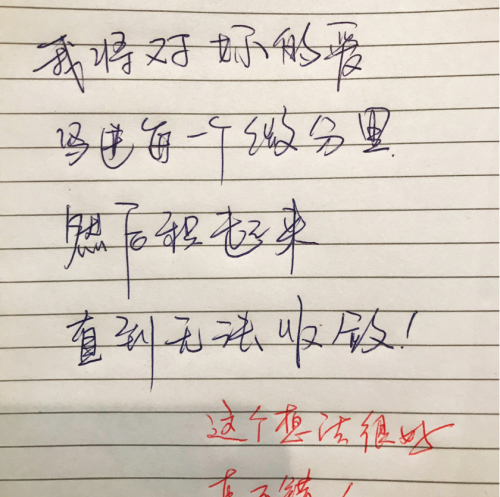 我将对妳的爱
写进每一个微分里
然后积起来
直到无法收敛!
这个想法很好
真不错!